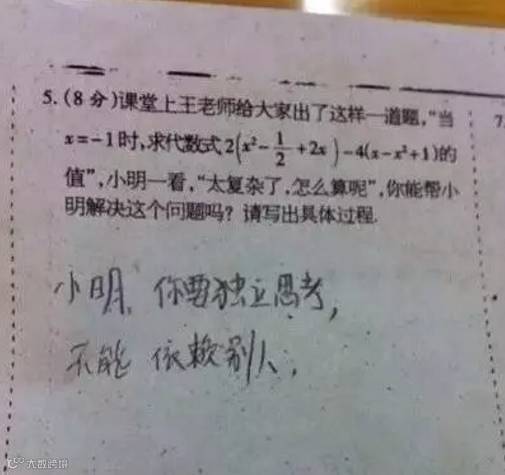 5.(8分)课堂上王老师给大家出了这样一道题,“当
x=-1时,求代数式2(x²-1/2+2x)-4(x-x²+1)的
值”,小明一看,“太复杂了,怎么算呢”,你能帮小
明解决这个问题吗？请写出具体过程.
7.
小明,你要独立思考,
不能依赖别人.
大数跨境